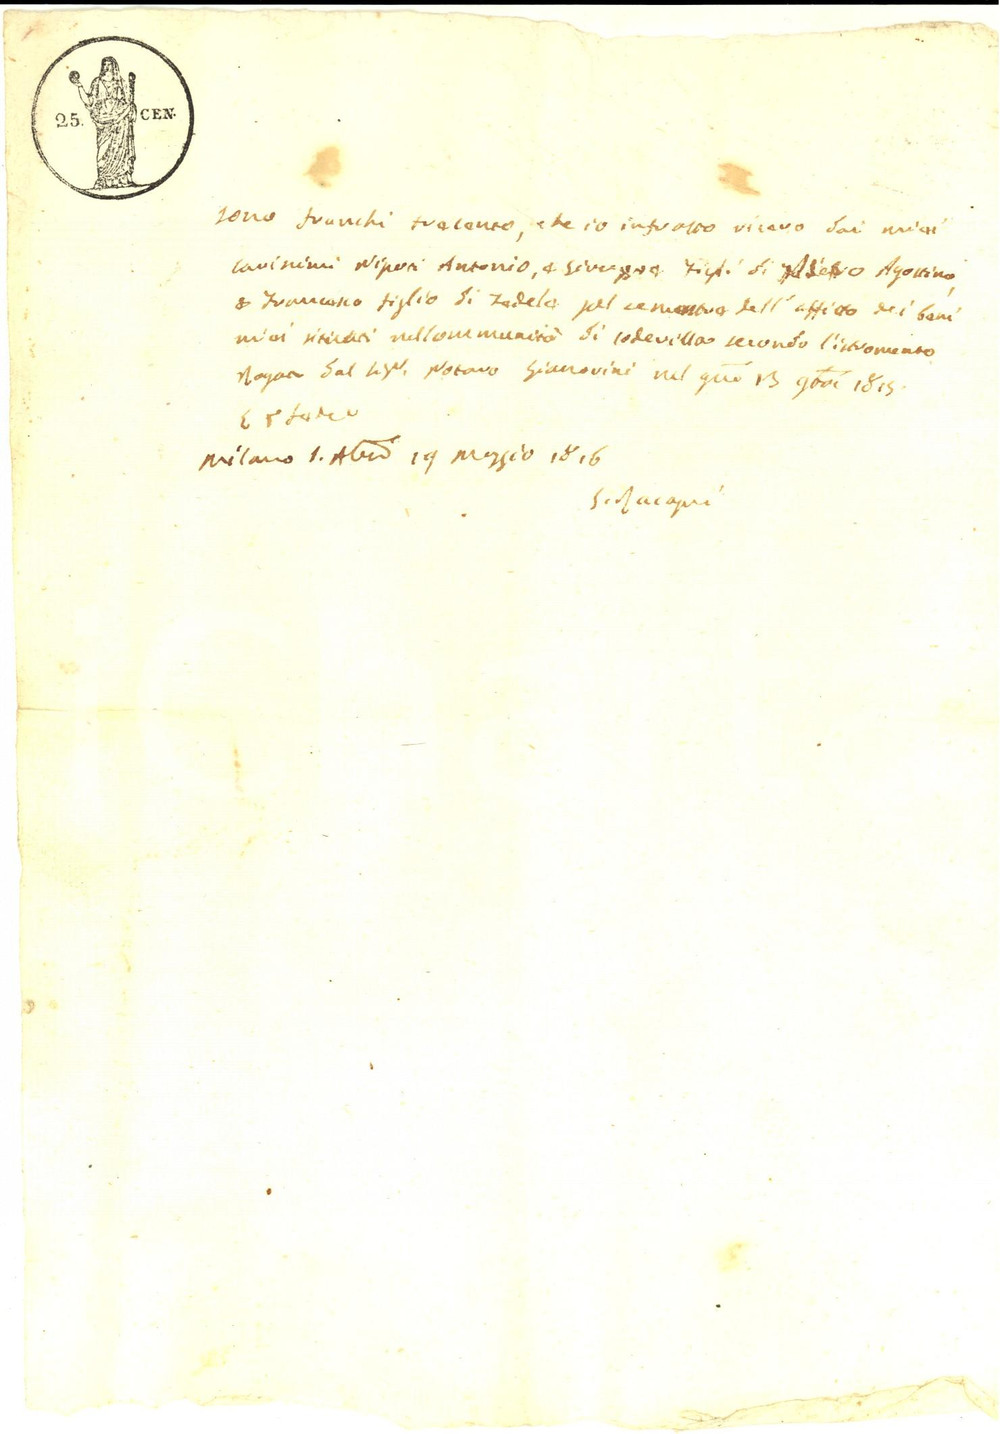 25. CEN.
Sono franchi trecento, che io infrasto ricevo dai miei
carissimi Nipoti Antonio, e Giuseppe figli di Pietro Agostino,
e Francesco figlio di Fedele pel semestre dell'affitto dei beni
miei situati nell communità di Codevilla secondo l'istromento
Rogato dal Sigr. Notaro Gianorini nel 13 9bre 1815.
E P fede
Milano S. Abro 19 Maggio 1816